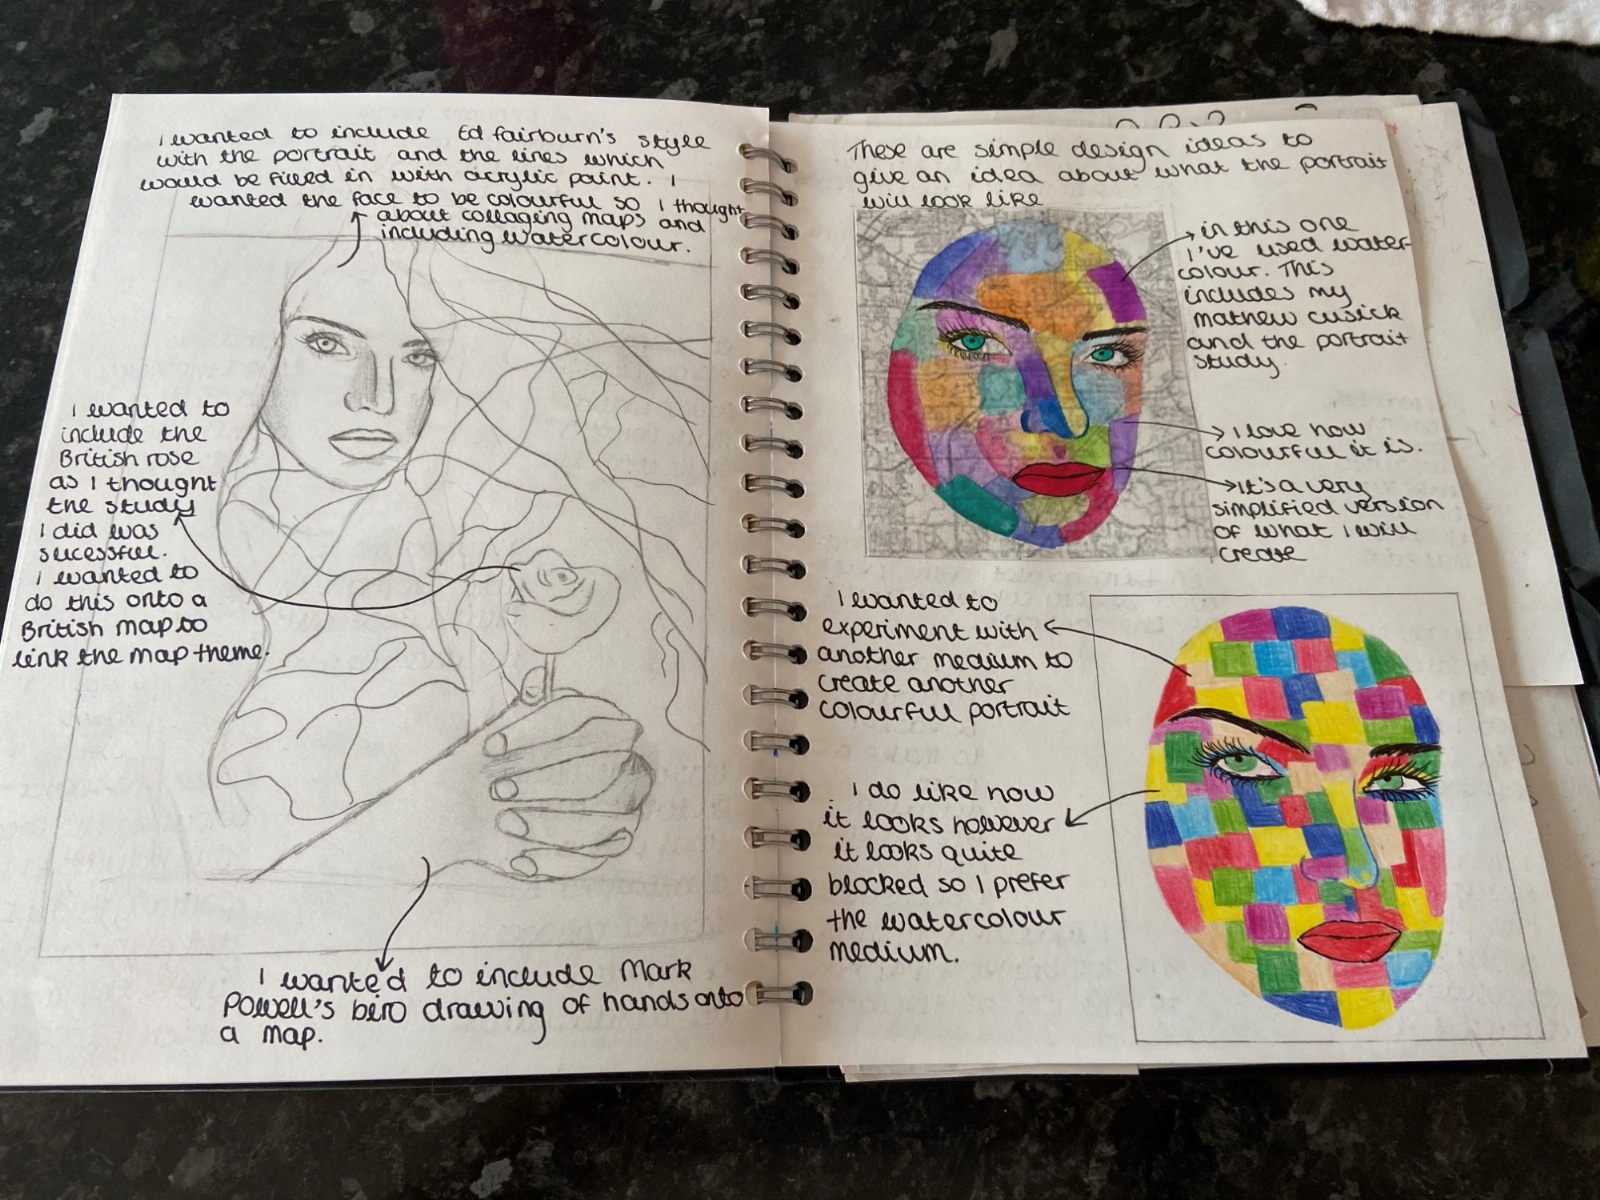 I wanted to include Ed fairburn's style
with the portrait and the lines which
would be filled in with acrylic paint. I
wanted the face to be colourful so I thought
about collaging maps and
including watercolour.
I wanted to
include the
British rose
as I thought
the study
I did was
sucessful.
I wanted to
do this onto a
British map to
link the map theme.
I wanted to include Mark
Powell's biro drawing of hands onto
a map.
These are simple design ideas to
give an idea about what the portrait
will look like
in this one
I've used water-
colour. This
includes my
mathew cusick
and the portrait
study.
I love how
colourful it is.
It's a very
simplified version
of what I will
create
I wanted to
experiment with
another medium to
create another
colourful portrait
I do like how
it looks however
it looks quite
blocked so I prefer
the watercolour
medium.